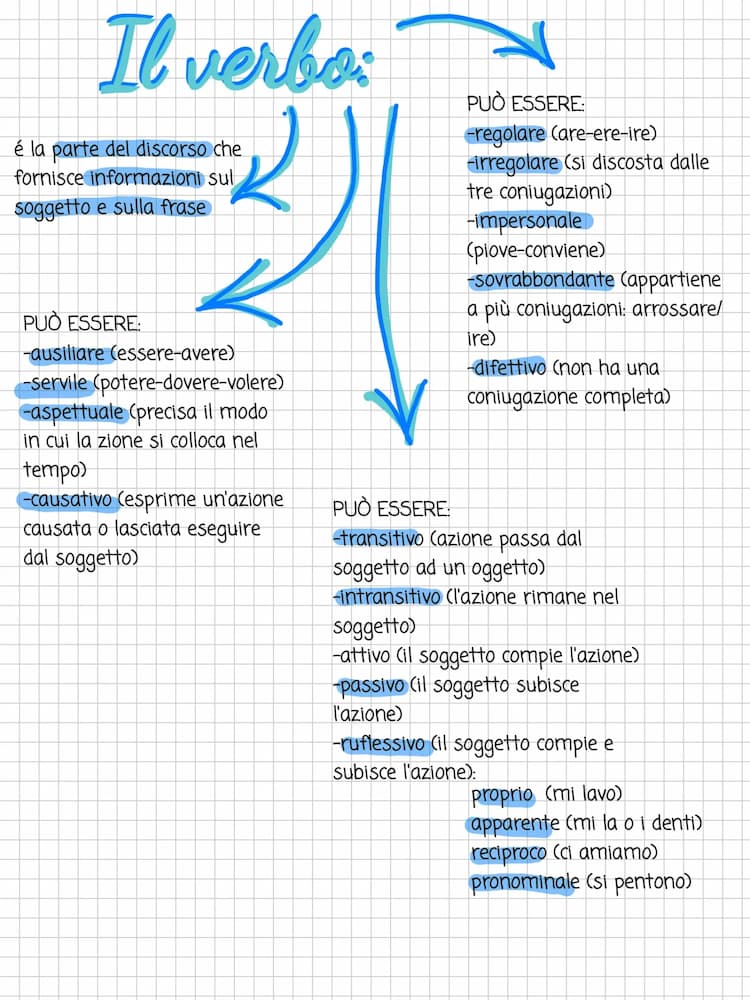 Il verbo:
é la parte del discorso che
fornisce informazioni sul
soggetto e sulla frase
PUÒ ESSERE:
-regolare (are-ere-ire)
-irregolare (si discosta dalle
tre coniugazioni)
-impersonale
(piove-conviene)
-sovrabbondante (appartiene
a più coniugazioni: arrossare/
ire)
-difettivo (non ha una
coniugazione completa)
PUÒ ESSERE:
-ausiliare (essere-avere)
-servile (potere-dovere-volere)
-aspettuale (precisa il modo
in cui la zione si colloca nel
tempo)
-causativo (esprime un'azione
causata o lasciata eseguire
dal soggetto)
PUÒ ESSERE:
-transitivo (azione passa dal
soggetto ad un oggetto)
-intransitivo (l'azione rimane nel
soggetto)
-attivo (il soggetto compie l'azione)
-passivo (il soggetto subisce
l'azione)
-ruflessivo (il soggetto compie e
subisce l'azione):
proprio (mi lavo)
apparente (mi la o i denti)
reciproco (ci amiamo)
pronominale (si pentono)